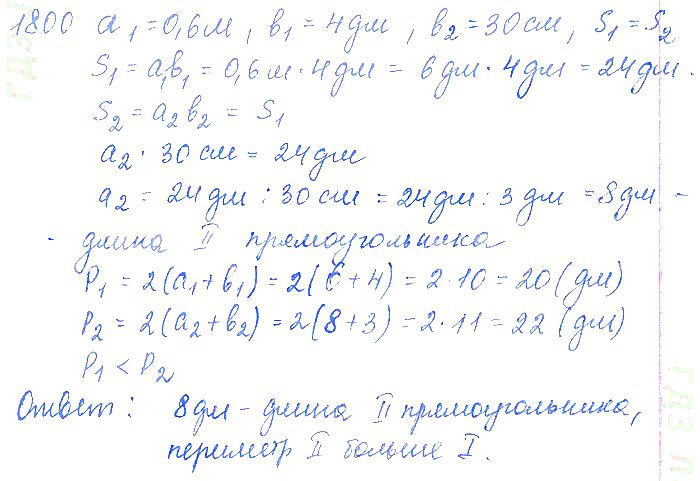 1800 a₁ = 0,6 м, в₁ = 4 дм, в₂ = 30 см, S₁ = S₂
S₁ = a₁в₁ = 0,6 м · 4 дм = 6 дм · 4 дм = 24 дм.
S₂ = a₂ в₂ = S₁
a₂ · 30 см = 24 дм
a₂ = 24 дм : 30 см = 24 дм : 3 дм = 8 дм -
- длина II прямоугольника
P₁ = 2(a₁ + в₁) = 2(6 + 4) = 2 · 10 = 20 (дм)
P₂ = 2(a₂ + в₂) = 2(8 + 3) = 2 · 11 = 22 (дм)
P₁ < P₂
Ответ: 8 дм - длина II прямоугольника,
периметр II больше I.